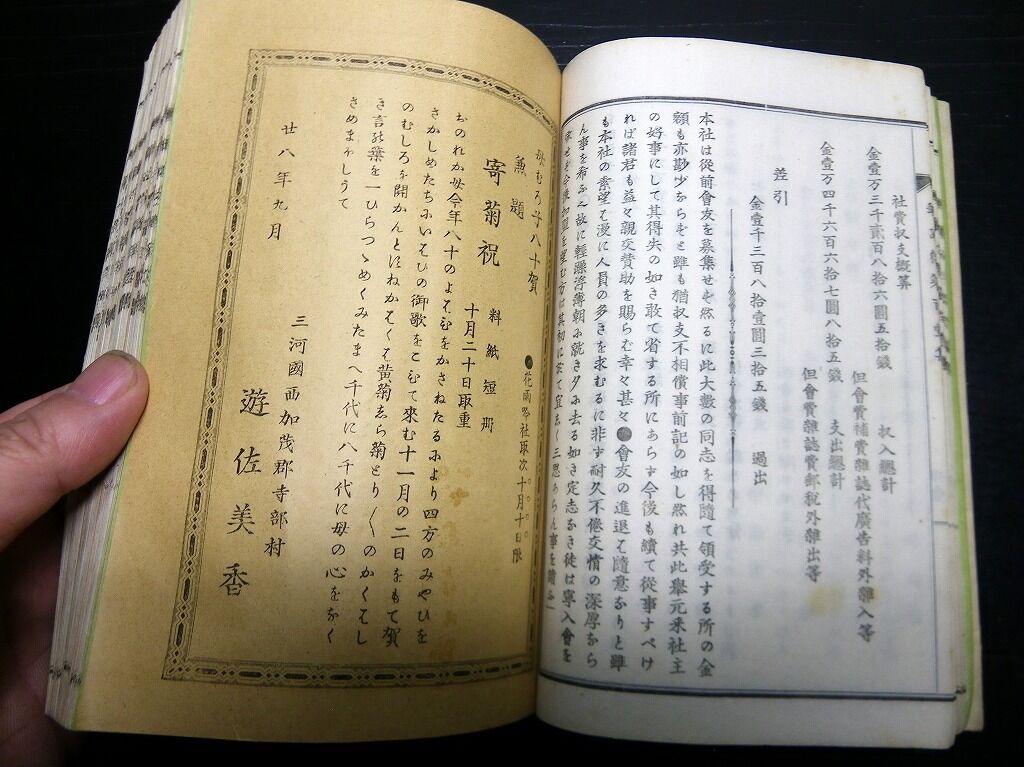 社費收支概算
金壹万三千貳百八拾六圓五拾錢 收入總計
但會費補費雜誌代廣告料外雜入等
金壹万四千六百六拾七圓八拾五錢 支出總計
但會費雜誌費郵税外雜出等
差引
金壹千三百八拾壹圓三拾五錢 過出
本社は從前會友を募集せを然るに此大數の同志を得隨て領受する所の金
額も亦尠少ならそと雖も猶收支不相償事前記の如し然れ共此擧元來社主
の好事にして其得失の如き敢て省する所にあらす今後も續て從事すべけ
れば諸君も益々親交賛助を賜らむ幸々甚々●會友の進退は隨意なりと雖
も本社の素望は漫に人員の多きを求むるに非す耐久不倦交情の深厚なら
ん事を希ふ故に輕躁浮薄朝に就き夕に去る如き定志なき徒は寧入會を
●花雨吟社取次十月十日限
母むろ子八十賀
兼題
寄菊祝 料紙短冊
十月二十日取重
おのれか母今年八十のよはひをかさねたるにより四方のみやひを
さかしめたちにいはひの御歌をこひて來む十一月の二日をもて賀
のむしろを開かんとはねかはくは黄菊志ら菊とり〱のかくはし
き言の葉を一ひらつゝめくみたまへ千代に八千代に母の心をなく
さめまゐらして
廿八年九月
三河國西加茂郡寺部村
遊佐美香